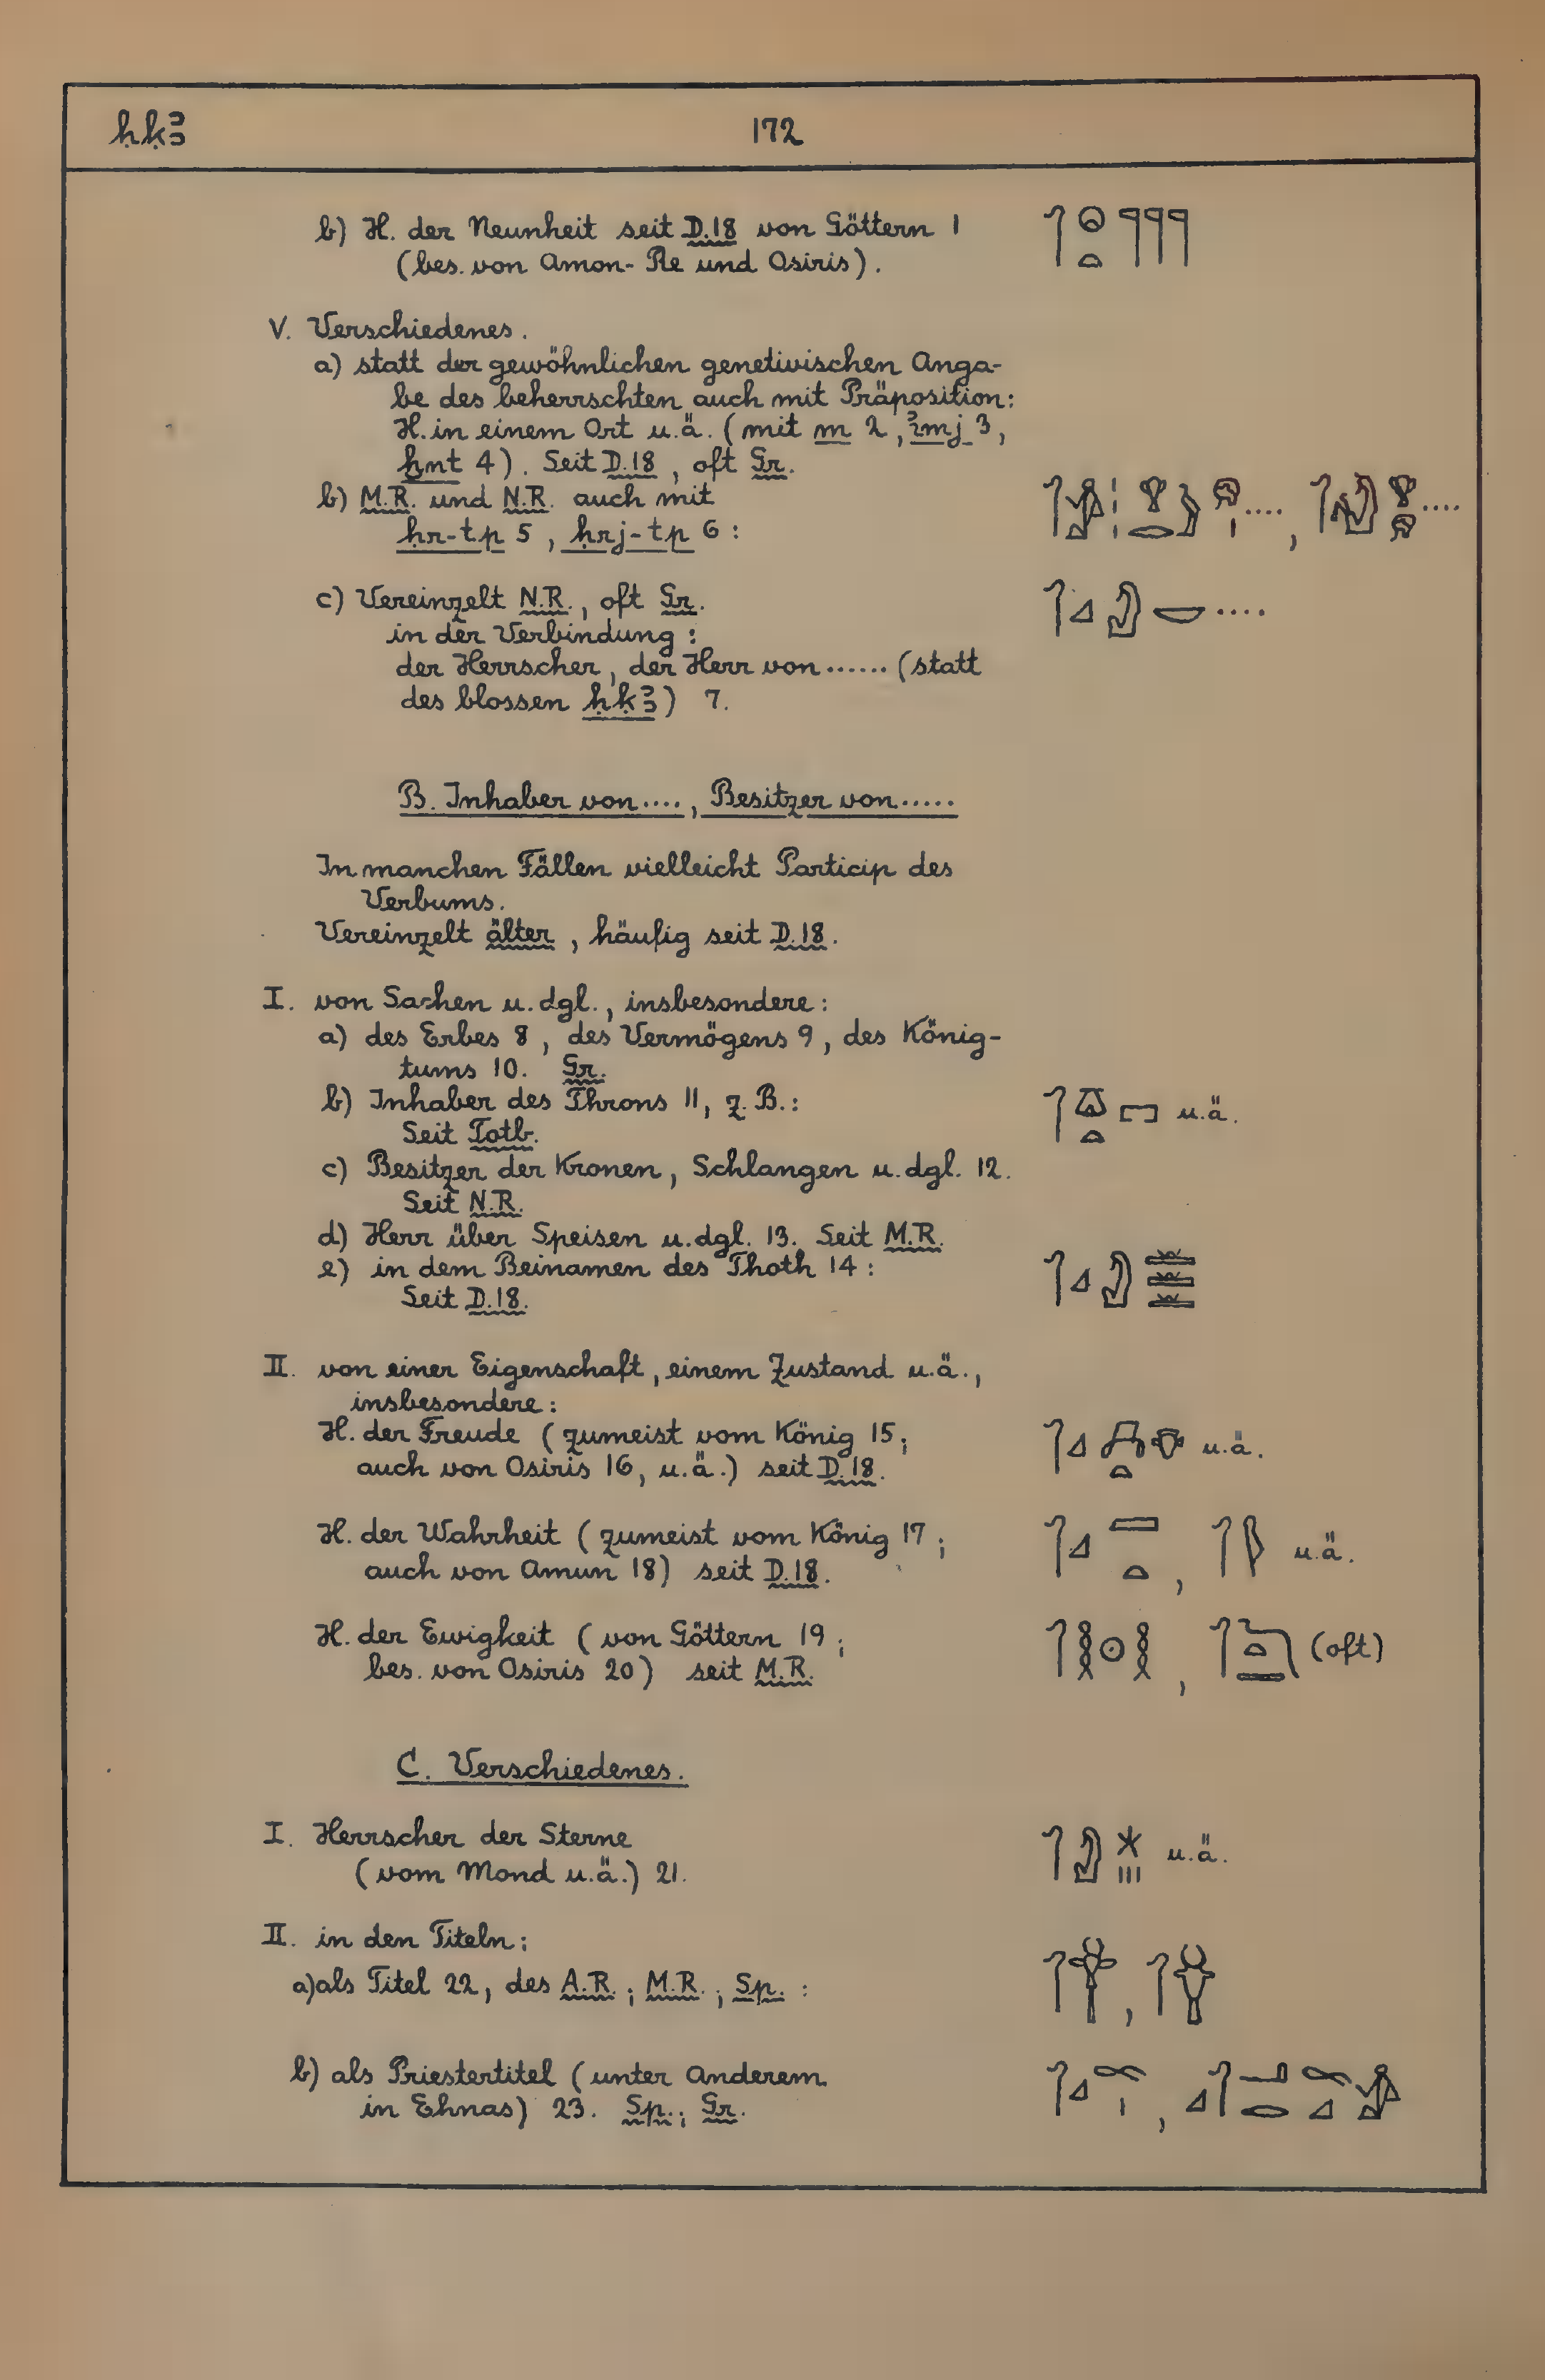 ḥḳꜣ 172
b) H. der Neunheit seit D.18 von Göttern 1
(bes. von Amon-Re und Osiris).
V. Verschiedenes.
a) statt der gewöhnlichen genetivischen Anga-
be des beherrschten auch mit Präposition:
H. in einem Ort u.ä. (mit m 2, ꜣmj 3,
ḫnt 4). Seit D.18, oft Gr.
b) M.R. und N.R. auch mit
ḥr-tp 5, ḥrj-tp 6:
c) Vereinzelt N.R., oft Gr.
in der Verbindung:
der Herrscher, der Herr von ...... (statt
des blossen ḥḳꜣ) 7.
B. Inhaber von...., Besitzer von.....
In manchen Fällen vielleicht Particip des
Verbums.
Vereinzelt älter, häufig seit D.18.
I. von Sachen u.dgl., insbesondere:
a) des Erbes 8, des Vermögens 9, des König-
tums 10. Gr.
b) Inhaber des Throns 11, z.B.: u.ä.
Seit Totb.
c) Besitzer der Kronen, Schlangen u.dgl. 12.
Seit N.R.
d) Herr über Speisen u.dgl. 13. Seit M.R.
e) in dem Beinamen des Thoth 14:
Seit D.18.
II. von einer Eigenschaft, einem Zustand u.ä.,
insbesondere:
H. der Freude (zumeist vom König 15; u.ä.
auch von Osiris 16, u.ä.) seit D.18.
H. der Wahrheit (zumeist vom König 17; u.ä.
auch von Amun 18) seit D.18.
H. der Ewigkeit (von Göttern 19; (oft)
bes. von Osiris 20) seit M.R.
C. Verschiedenes.
I. Herrscher der Sterne u.ä.
(vom Mond u.ä.) 21.
II. in den Titeln:
a) als Titel 22, des A.R.; M.R.; Sp.:
b) als Priestertitel (unter Anderem
in Ehnas) 23. Sp.; Gr.